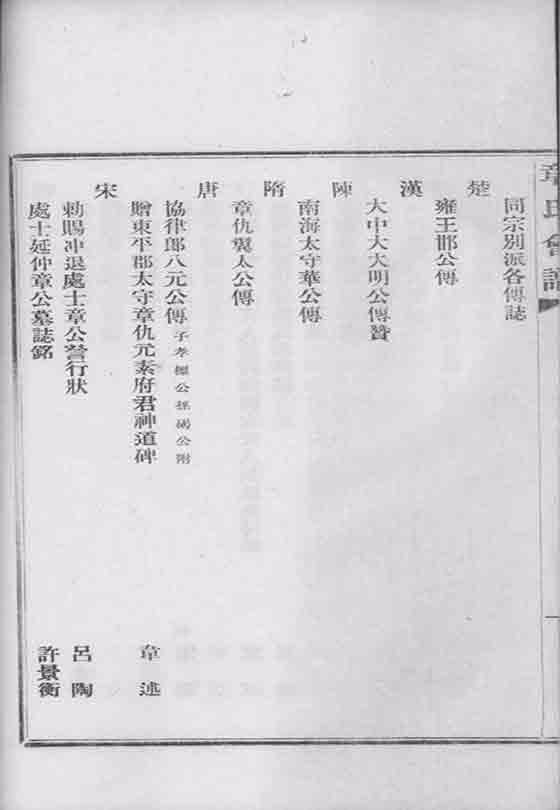 章氏會譜
同宗別派各傳誌
楚
雍王邯公傳
漢
大中大夫明公傳贊
陳
南海太守華公傳
隋
章仇翼太公傳
唐
協律郎八元公傳 子孝標公孫碣公附
贈東平郡太守章仇元素府君神道碑 韋述
宋
勅賜冲退處士章公詧行狀 呂陶
處士延仲章公墓誌銘 許景衡